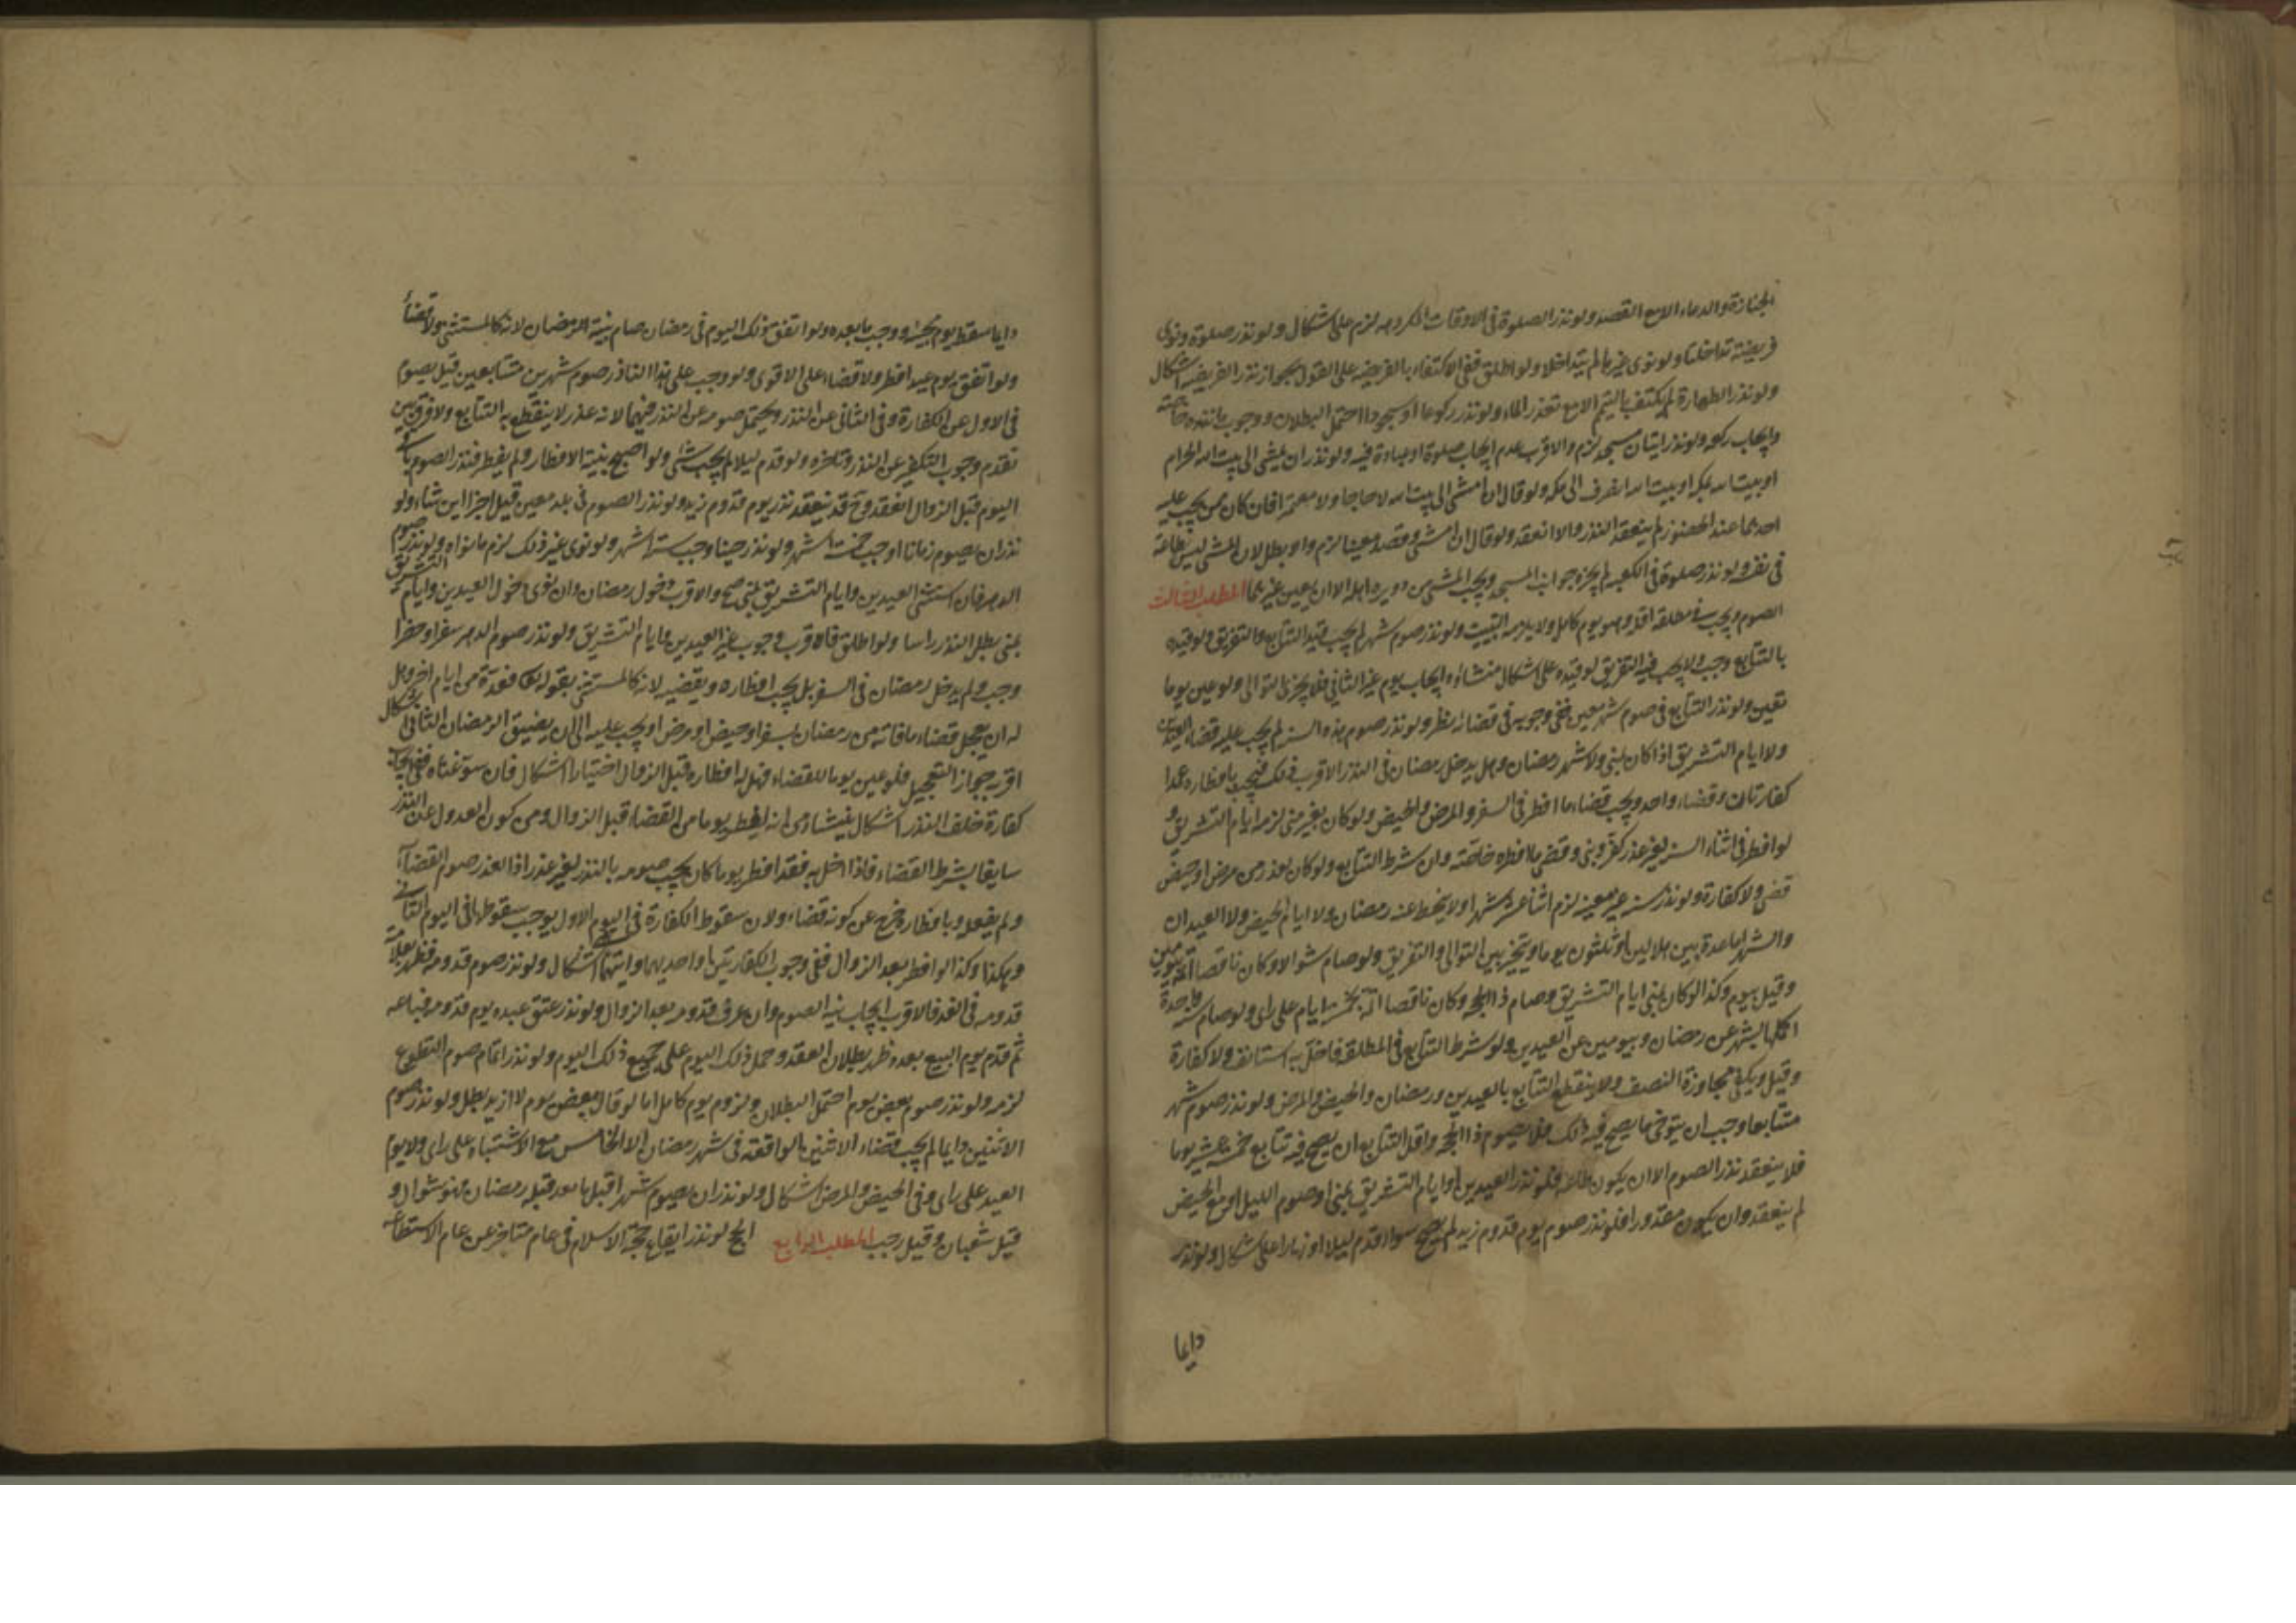 الجنازة والدعاء الا مع القصد ولو نذر الصلوة فى الاوقات المكروهه لزم على اشكال ولو نذر صلوة ونوى
فريضته تداخلتا ولو نوى غيرها لم يتداخلا ولو اطلق ففى الاكتفاء بالفريضه على القول بجواز نذر الفريضه اشكال
ولو نذر الطهارة لم يكتف بالتيمم الا مع تعذر الماء ولو نذر ركوعا او سجودا احتمل البطلان ووجوب ما نذره خاصته
وايجاب ركعه ولو نذر ايتان مسجد لزم والاقرب عدم ايجاب صلوة او عبادة فيه ولو نذر ان يمشى الى بيت الله الحرام
او بيت الله بمكه او بيت الله انصرف الى مكه ولو قال ان امشى الى بيت الله لا حاجا ولا معتمرا فان كان ممن يجب عليه
احدهما عند الحضور لم ينعقد النذر والا انعقد ولو قال ان امشى وقصد معينا لزم والا بطل لان المشى ليس طاعة
فى نفسه ولو نذر صلوة فى الكعبه لم يجزه جوانب المسجد ويجب المشى من دويره اهله الا ان يعين غيرها المطلب الثالث
الصوم ويجب فى مطلقه اقله وهو يوم كامل ولا يلزمه التبييت ولو نذر صوم شهر لم يجب قيد التتابع والتفريق ولو قيده
بالتتابع وجب ولا يجب فيه التفريق لو قيده على اشكال منشاؤه ايجاب يوم غير الثانى فلا يجزى المتوالى ولو عين يوما
تعين ولو نذر التتابع فى صوم شهر معين ففى وجوبه فى قضائه نظر ولو نذر صوم هذه السنه لم يجب عليه قضاء العيدين
ولا ايام التشريق اذا كان بمنى ولا شهر رمضان وهل يدخل رمضان فى النذر الاقرب ذلك فيجب بافطاره عمدا
كفارتان وقضاء واحد ويجب قضاء ما افطر فى السفر والمرض والحيض ولو كان بغير منى لزمه ايام التشريق و
لو افطر فى اثناء السنه لغير عذر كفر وبنى وقضى ما افطره خاصته وان شرط التتابع ولو كان لعذر من مرض او حيض
قضى ولا كفارة ولو نذر سنه غير معينه لزم اثنا عشر شهرا ولا ينحط عنه رمضان ولا ايام الحيض ولا العيدان
والشهر اما عدة بين هلالين او ثلثون يوما ويتخير بين التوالى والتفريق ولو صام شوالا وكان ناقصا اتمه بيومين
وقيل بيوم وكذا لو كان بمنى ايام التشريق وصام ذا الحجه وكان ناقصا اتمه بخمسه ايام على راى ولو صام سنه واحدة
اكملها بشهر عن رمضان وبيومين عن العيدين ولو شرط التتابع فى المطلقه فاخل به استانف ولا كفارة
وقيل ويكفى مجاوزة النصف ولا ينقطع التتابع بالعيدين ورمضان والحيض والمرض ولو نذر صوم شهر
متتابعا وجب ان يتوخى ما يصح فيه ذلك فلا يصوم ذا الحجه واقل التتابع ان يصح فيه تتابع خمسه عشر يوما
فلا ينعقد نذر الصوم الا ان يكون طاعه فلو نذر العيدين او ايام التشريق بمنى او صوم الليل او مع الحيض
لم ينعقد وان يكون مقدورا فلو نذر صوم يوم قدوم زيد لم يصح سواء قدم ليلا او نهارا على اشكال ولو نذر
دايما
دايما سقط يوم مجيئه ووجب ما بعده ولو اتفق ذلك اليوم فى رمضان صام بنية الرمضان لانه كالمستثنى ولا قضاء
ولو اتفق يوم عيد افطر ولا قضاء على الاقوى ولو وجب على هذا الناذر صوم شهرين متتابعين قيل يصوم
فى الاول عن الكفارة وفى الثانى عن النذر ويحتمل صومه عن النذر فيهما لانه عذر لا ينقطع به التتابع ولا فرق بين
تقدم وجوب التكفير عن النذر وتاخره ولو قدم ليلا لم يجب شئ ولو اصبح بنية الافطار ولم يفطر فنذر الصوم باقى
اليوم قبل الزوال انعقد وح قد ينعقد نذر يوم قدوم زيد ولو نذر الصوم فى بلد معين قيل اجزا اين شاء ولو
نذر ان يصوم زمانا وجب خمسة اشهر ولو نذر حينا وجب ستة اشهر ولو نوى غير ذلك لزم ما نواه ولو نذر صوم
الدهر فان استثنى العيدين وايام التشريق بمنى صح والاقرب دخول رمضان وان نوى دخول العيدين وايام التشريق
بمنى بطل النذر راسا ولو اطلق فالاقرب وجوب غير العيدين وايام التشريق ولو نذر صوم الدهر سفرا وحضرا
وجب ولم يدخل رمضان فى السفر بل يجب افطاره ويقضيه لانه كالمستثنى بقوله تعالى فعدة من ايام اخر وهل
له ان يعجل قضاء ما فاته من رمضان بسفر او حيض او مرض او يجب عليه الى ان يضيق الرمضان الثانى اشكال
اقربه جواز التعجيل فلو عين يوما للقضاء فهل له افطاره قبل الزوال اختيارا اشكال فان سوغناه ففى ايجاب
كفارة خلف النذر اشكال ينشا من انه افطر يوما من القضاء قبل الزوال ومن كون العدول عن النذر
سايغا بشرط القضاء فاذا اخل به فقد افطر يوما كان يجب صومه بالنذر لغير عذر اذ العذر صوم القضاء
ولم يفعل وبافطاره خرج عن كونه قضاء ولان سقوط الكفارة فى اليوم الاول يوجب سقوطها فى اليوم الثانى
وهكذا وكذا لو افطر بعد الزوال ففى وجوب الكفارتين او احديهما وايتهما اشكال ولو نذر صوم قدومه فظهر بعلامة
قدومه فى الغد فالاقرب ايجاب نية الصوم وان عرف قدومه بعد الزوال ولو نذر عتق عبده يوم قدومه فباعه
ثم قدم يوم البيع بعده ظهر بطلان العقد وحمل ذلك اليوم على جميع ذلك اليوم ولو نذر اتمام صوم التطوع
لزمه ولو نذر صوم بعض يوم احتمل البطلان ولزوم يوم كامل اما لو قال بعض يوم لا ازيد بطل ولو نذر صوم
الاثنين دايما لم يجب قضاء الاثنين الواقعة فى شهر رمضان الا الخامس مع الاشتباه على راى ولا يوم
العيد على راى وفى الحيض والمرض اشكال ولو نذر ان يصوم شهرا قبل ما بعد قبله رمضان فهو شوال و
قيل شعبان وقيل رجب المطلب الرابع الحج لو نذر ايقاع حجة الاسلام فى عام متاخر عن عام الاستطاعه